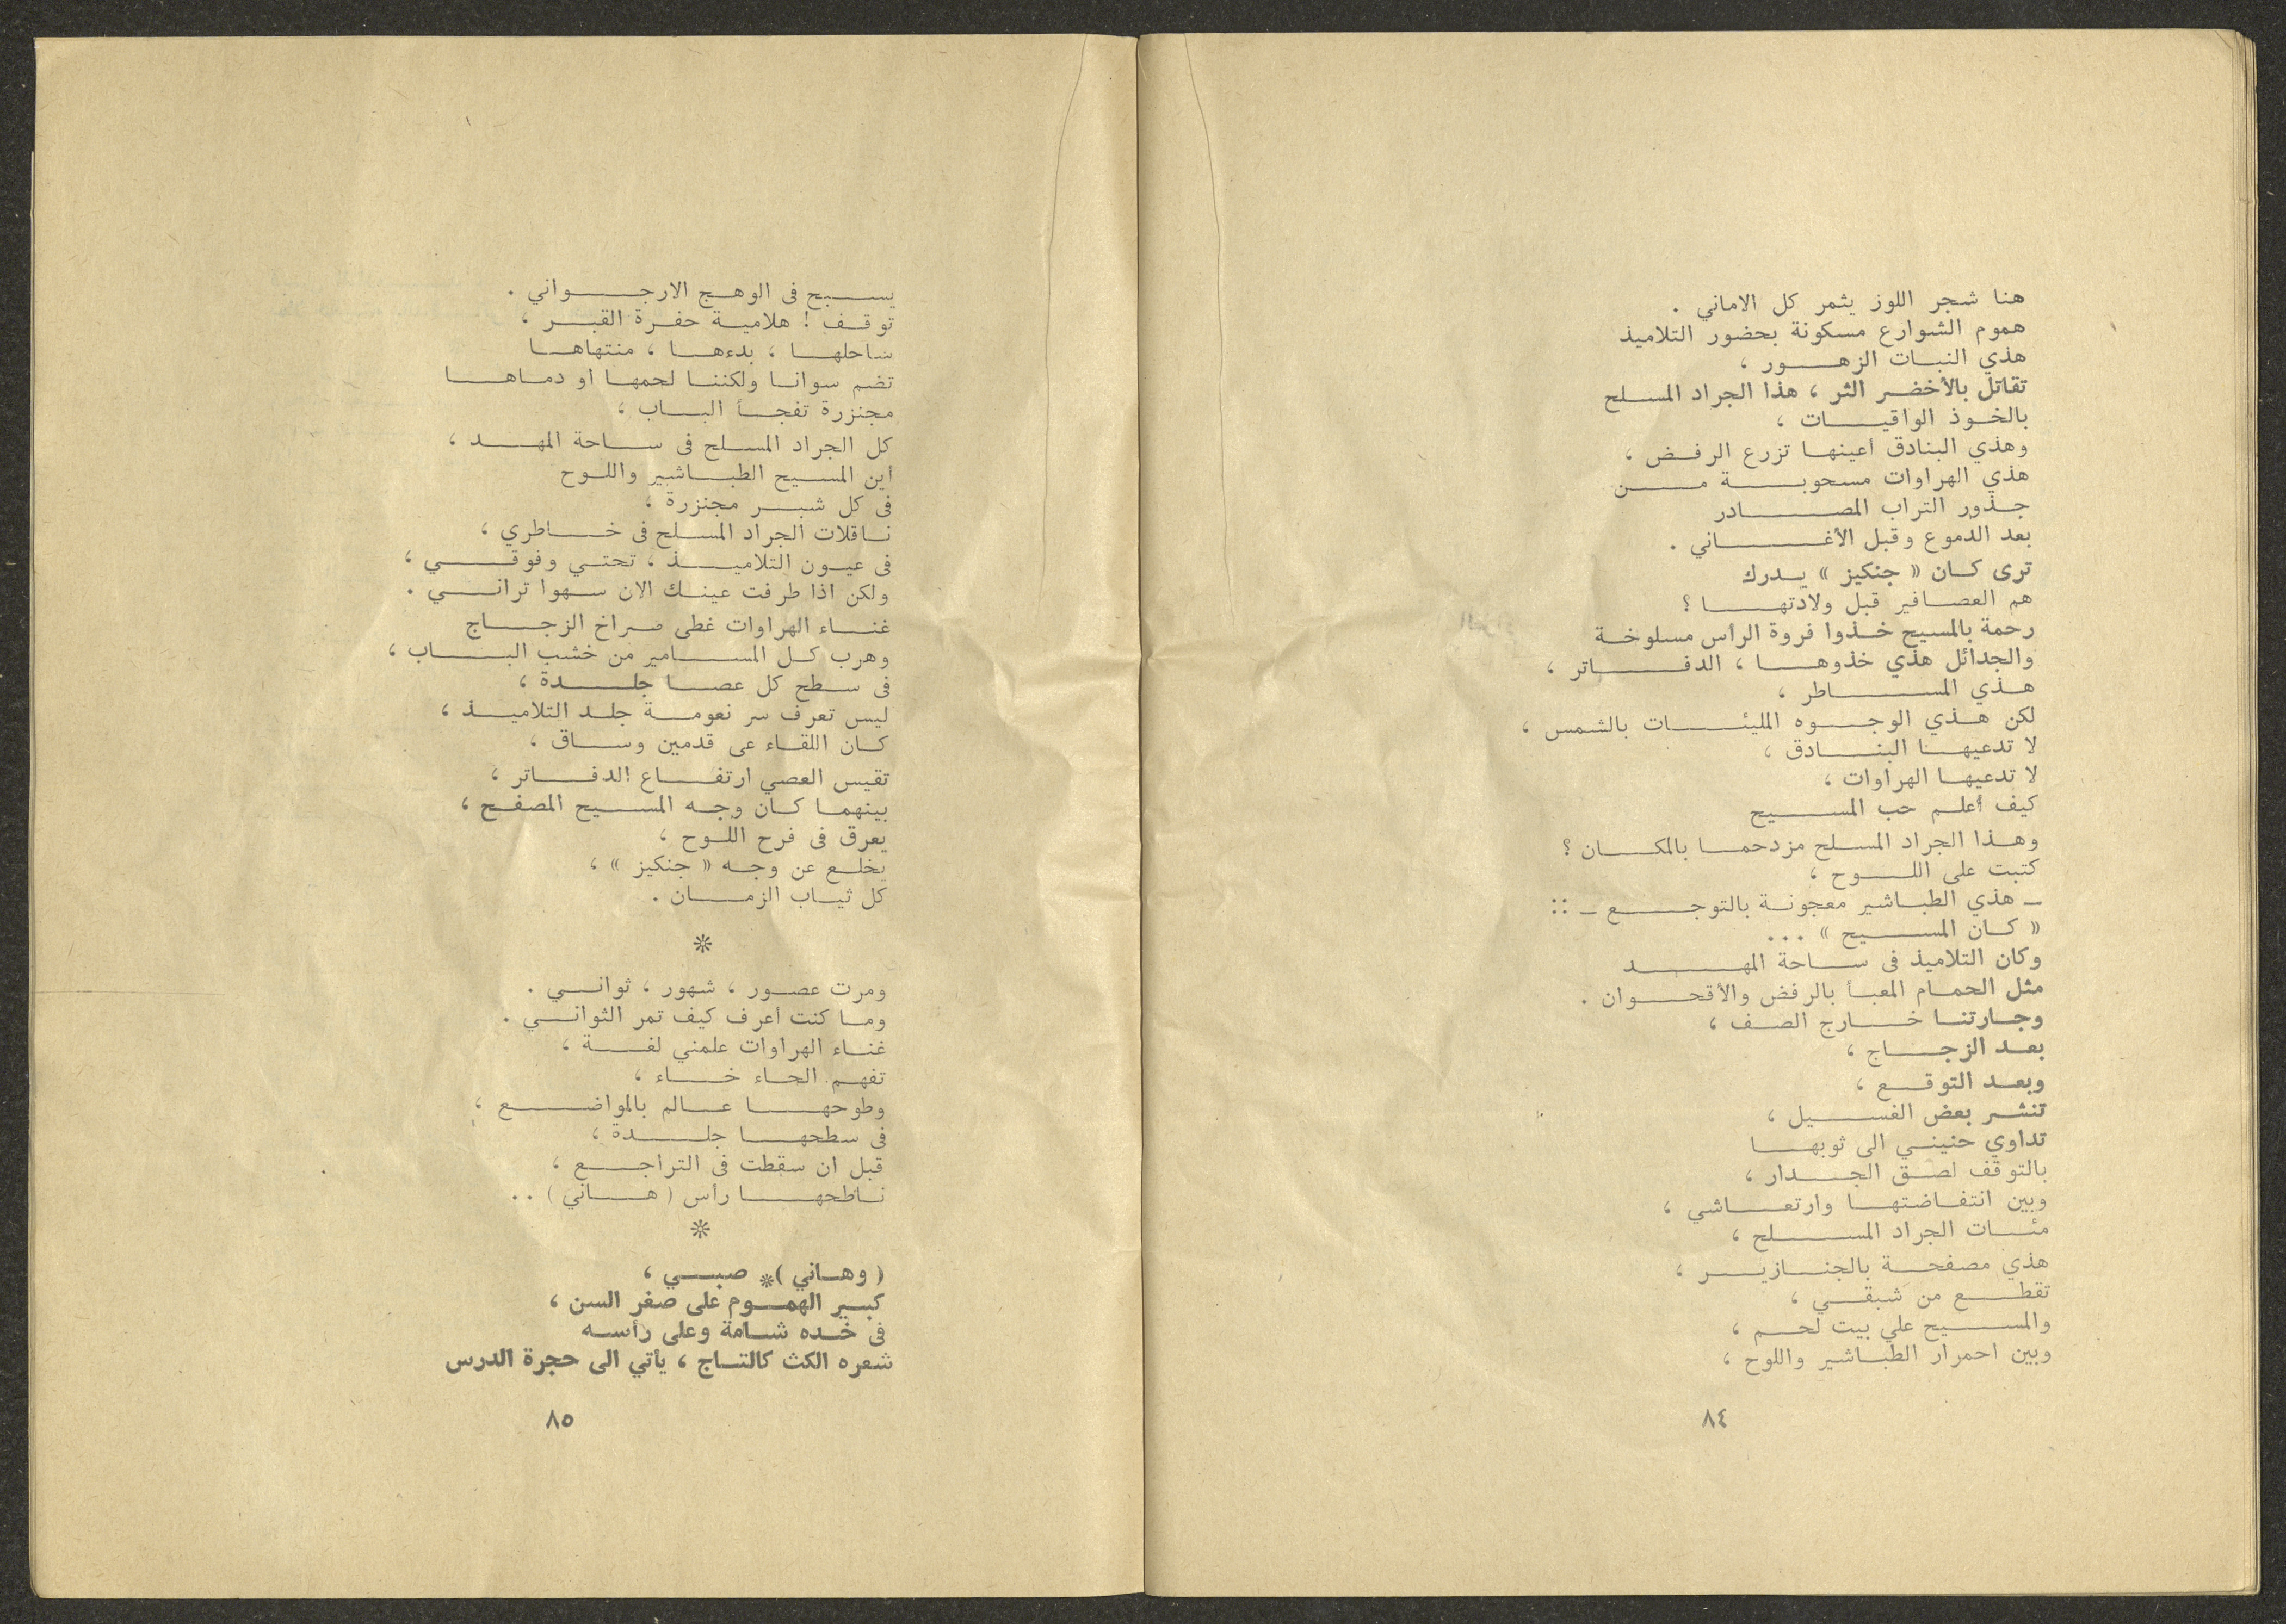 هنا شجر اللوز يثمر كل الاماني .
هموم الشوارع مسكونة بحضور التلاميذ
هذي النبات الزهور ،
تقاتل بالأخضر الثر ، هذا الجراد المسلح
بالخوذ الواقيات ،
وهذي البنادق اعينها تزرع الرفض ،
هذي الهراوات مسحوبة من
جذور التراب المصادر
بعد الدموع وقبل الأغاني .
ترى كان « جنكيز » يدرك
هم العصافير قبل ولادتها ؟
رحمة بالمسيح خذوا فروة الرأس مسلوخة
والجدائل هذي خذوها ، الدفاتر ،
هذي المساطر ،
لكن هذي الوجوه المليئات بالشمس ،
لا تدعيها البنادق ،
لا تدعيها الهراوات ،
كيف أعلم حب المسيح
وهذا الجراد المسلح مزدحما بالمكان ؟
كتبت على اللوح ،
ـ هذي الطباشير معجونة بالتوجع ـ ::
« كان المسيح » ...
وكان التلاميذ فى ساحة المهد
مثل الحمام المعبأ بالرفض والأقحوان .
وجارتنا خارج الصف ،
بعد الزجاج ،
وبعد التوقع ،
تنشر بعض الغسيل ،
تداوي حنيني الى ثوبها
بالتوقف لصق الجدار ،
وبين انتفاضتها وارتعاشي ،
مئات الجراد المسلح ،
هذي مصفحة بالجنازير ،
تقطع من شبقي ،
والمسيح علي بيت لحم ،
وبين احمرار الطباشير واللوح ،
٨٤
يسبح فى الوهج الارجواني .
توقف ! هلامية حفرة القبر ،
ساحلها ، بدءها ، منتهاها
تضم سوانا ولكننا لحمها او دماها
مجنزرة تفجأ الباب ،
كل الجراد المسلح فى ساحة المهد ،
أين المسيح الطباشير واللوح
فى كل شبر مجنزرة ،
ناقلات الجراد المسلح فى خاطري ،
فى عيون التلاميذ ، تحتي وفوقي ،
ولكن اذا طرفت عينك الان سهوا تراني .
غناء الهراوات غطى صراخ الزجاج
وهرب كل المسامير من خشب الباب ،
فى سطح كل عصا جلدة ،
ليس تعرف سر نعومة جلد التلاميذ ،
كان اللقاء عى قدمين وساق ،
تقيس العصي ارتفاع الدفاتر ،
بينهما كان وجه المسيح المصفح ،
يعرق فى فرح اللوح ،
يخلع عن وجه « جنكيز » ،
كل ثياب الزمان .
*
ومرت عصور ، شهور ، ثواني .
وما كنت أعرف كيف تمر الثواني .
غناء الهراوات علمني لغة ،
تفهم الحاء خاء ،
وطوحها عالم بالمواضع ،
فى سطحها جلدة ،
قبل ان سقطت فى التراجع ،
ناطحها رأس ( هاني ) ..
*
( وهاني )* صبي ،
كبير الهموم على صغر السن ،
فى خده شامة وعلى رأسه
شعره الكث كالتاج ، يأتي الى حجرة الدرس
٨٥